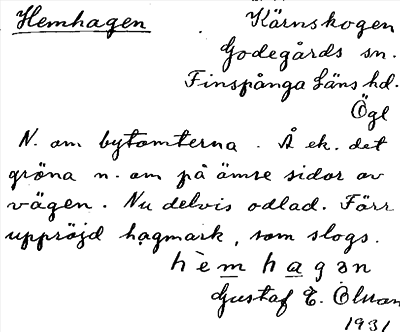 Hemhagen
Kärnskogen
Godegårds sn.
Finspånga läns hd.
Ögl
N. om bytomterna. Å ek. det
gröna n. om på ömse sidor av
vägen. Nu delvis odlad. Förr
uppröjd hagmark, som slogs.
hèmhagən
Gustaf E. Olsson
1931